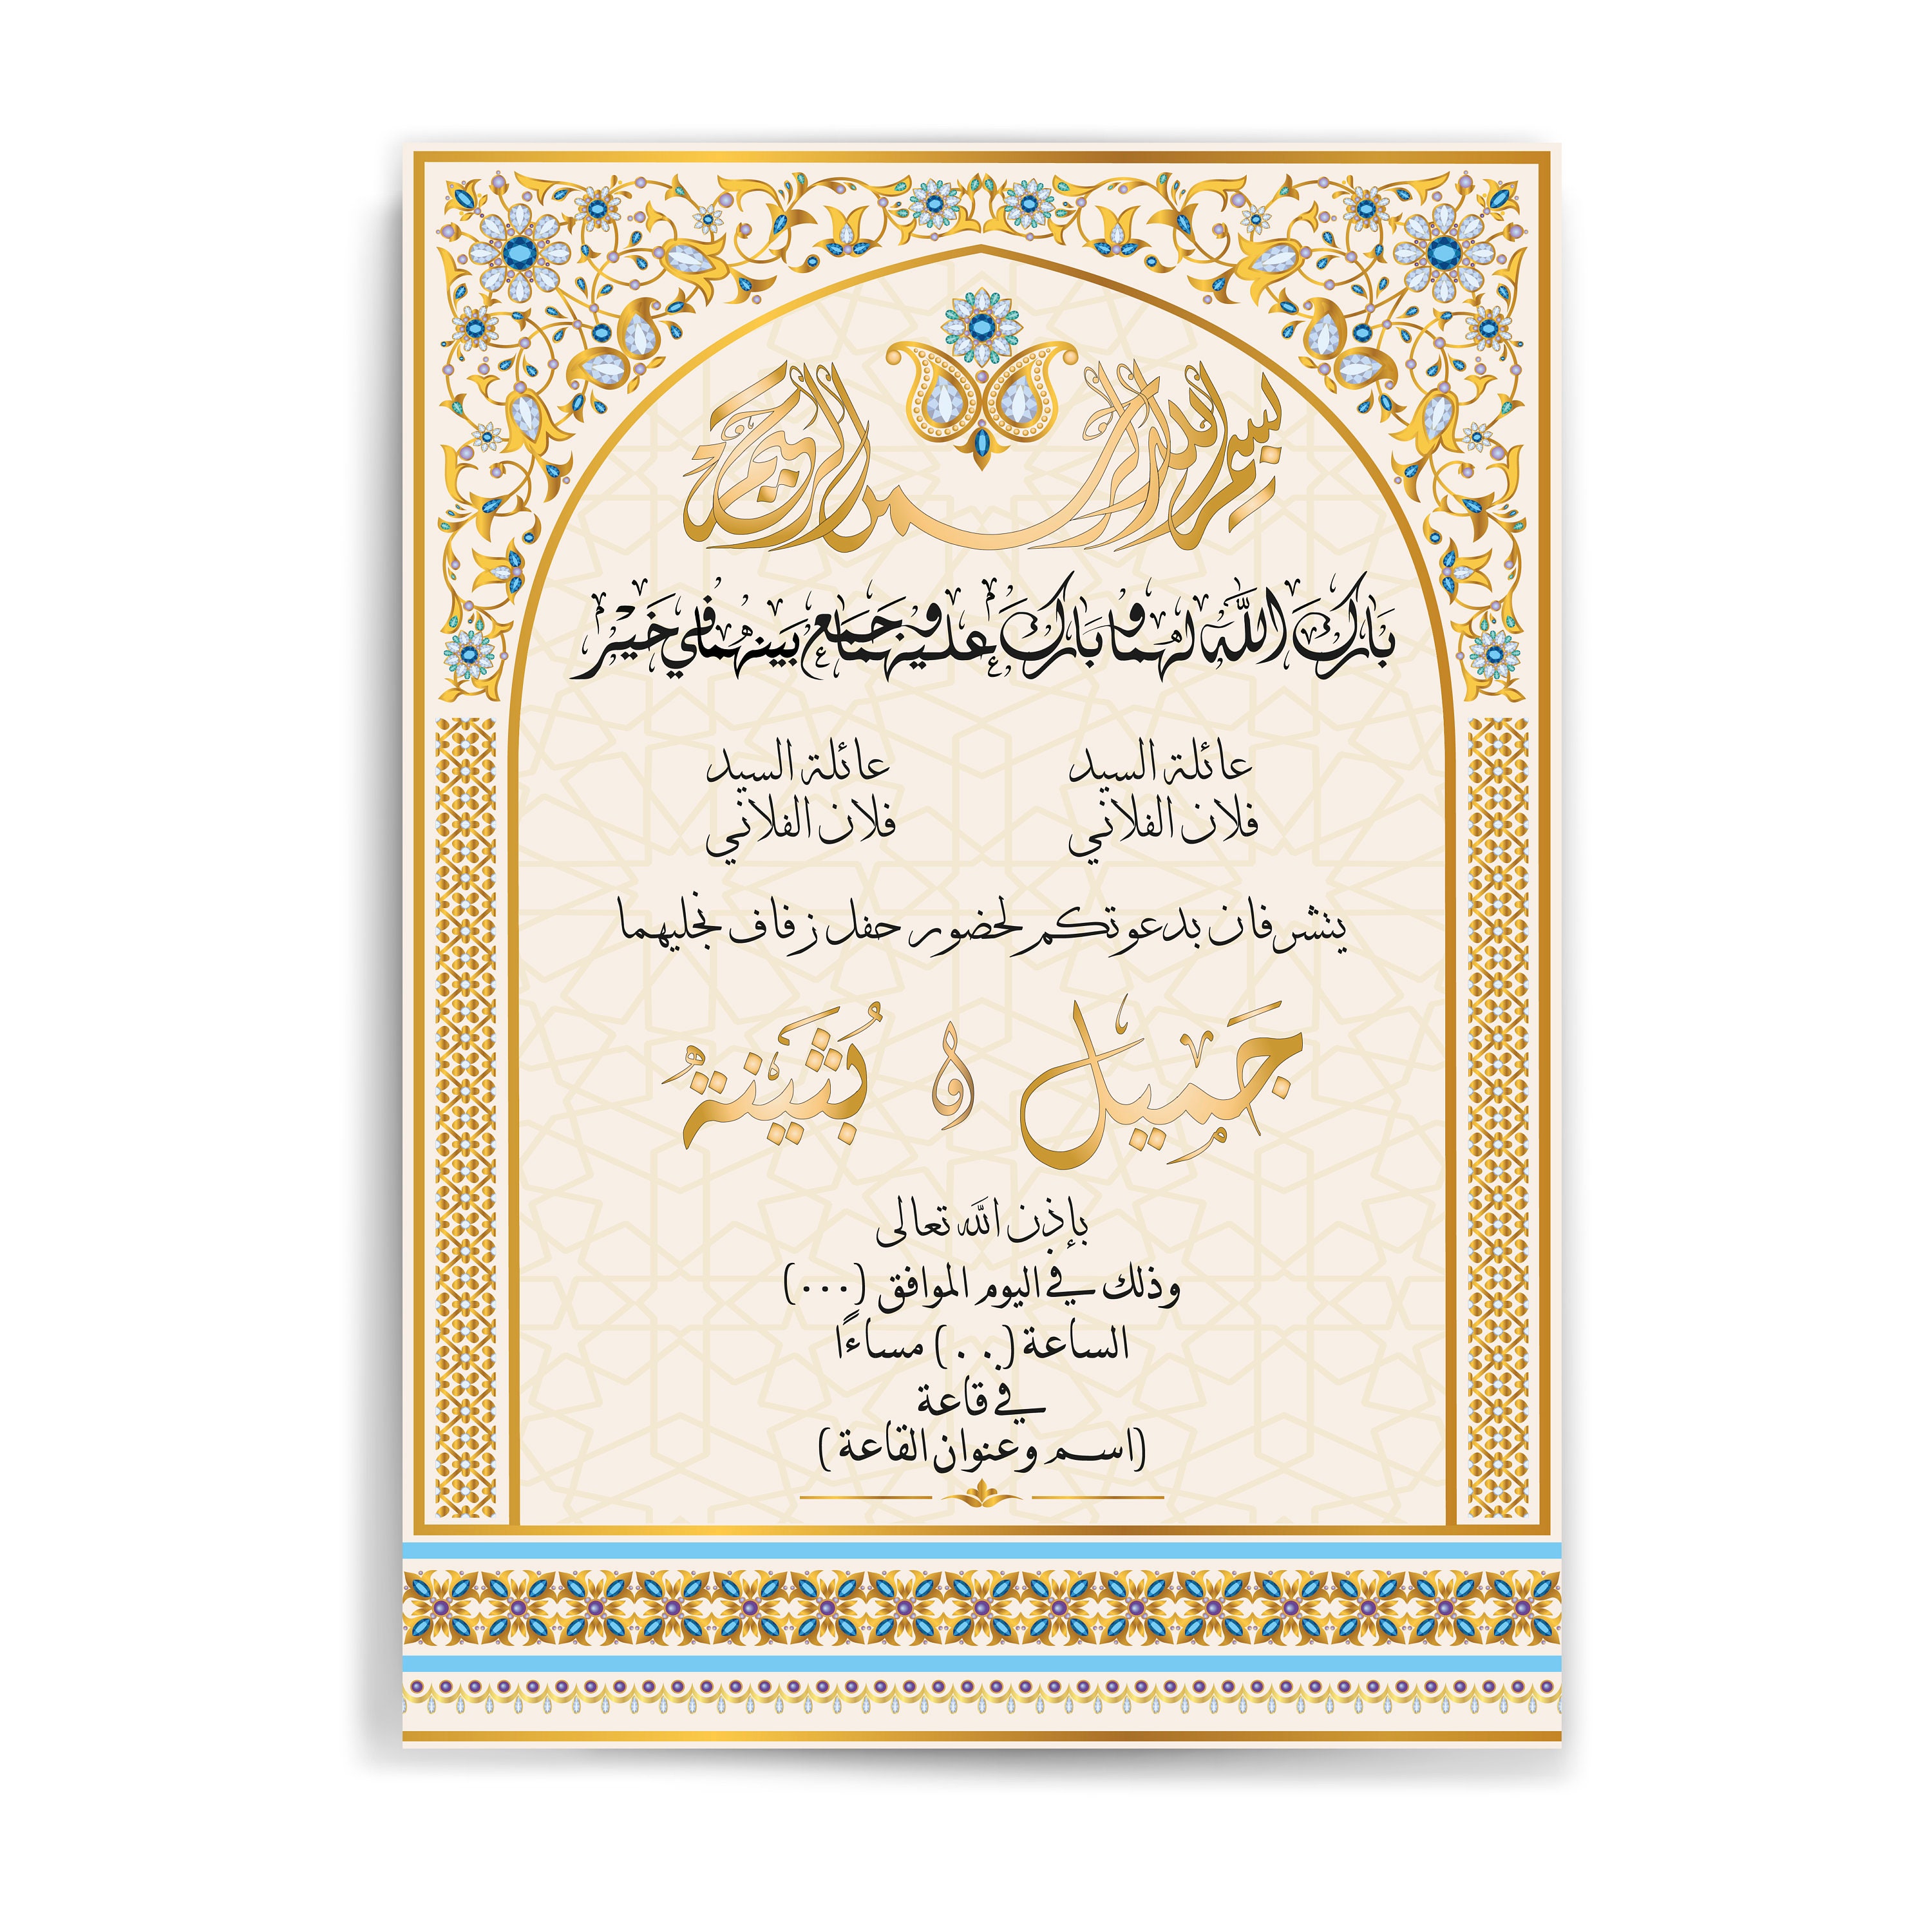 بسم الله الرحمن الرحيم
بَارَكَ اللَّهُ لَهُمَا وَبَارَكَ عَلَيْهِمَا وَجَمَعَ بَيْنَهُمَا فِي خَيْرٍ
عائلة السيد
فلان الفلاني
عائلة السيد
فلان الفلاني
يتشرفان بدعوتكم لحضور حفل زفاف نجليهما
جَمِيل و بُثَينَة
بإذن الله تعالى
وذلك في اليوم الموافق (...)
الساعة (. .) مساءًا
في قاعة
(اسم وعنوان القاعة)